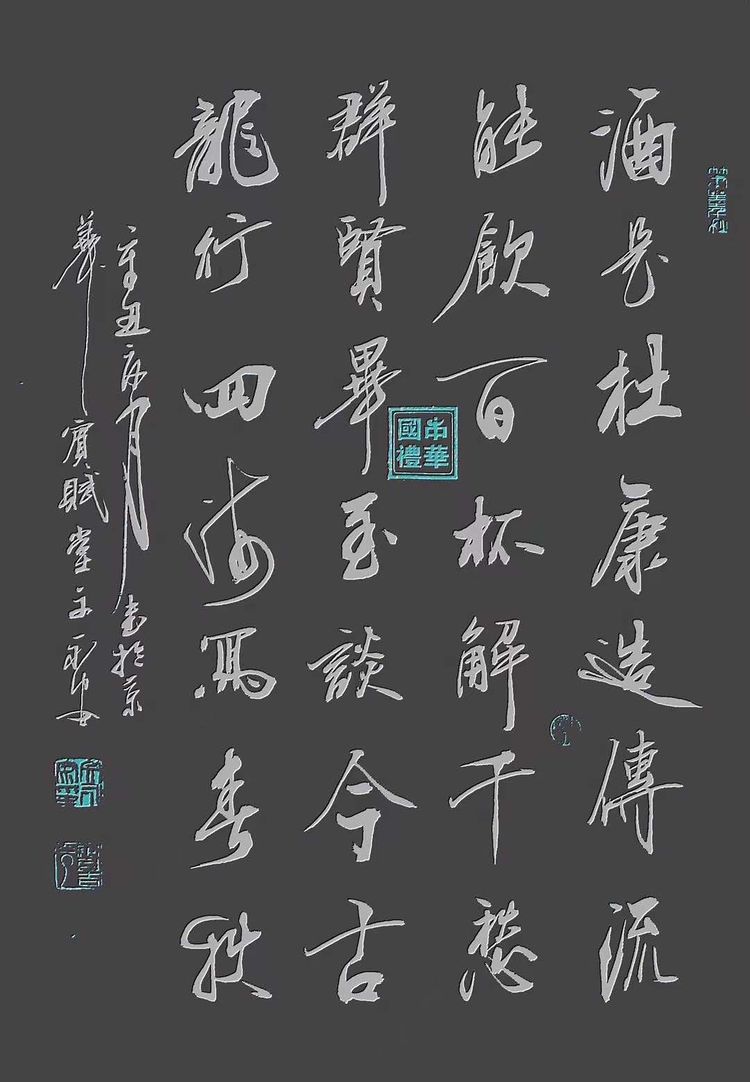 酒是杜康造傳流
能飲百杯解千愁
群賢畢至談今古
龍行四海寫春秋
辛丑 月 書於京
華 賓賦堂主
中華國禮